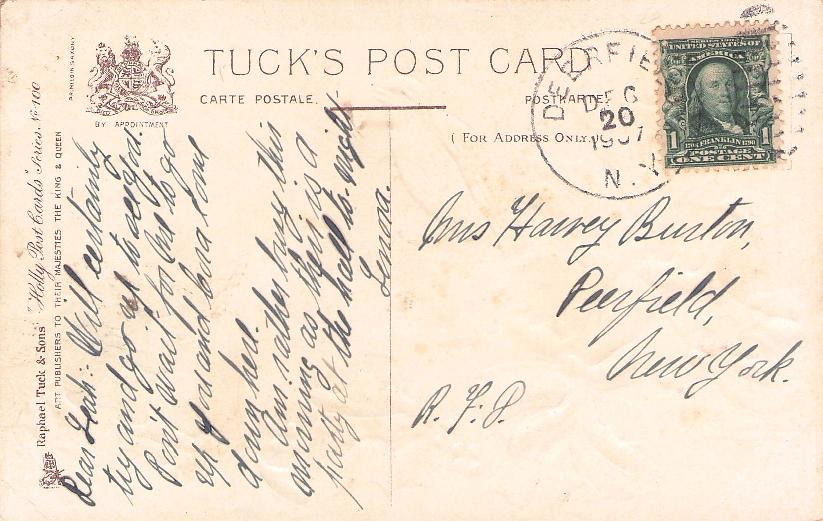 TUCK'S POST CARD
CARTE POSTALE.
POSTKARTE.
( FOR ADDRESS ONLY.)
BY APPOINTMENT
PRINTED IN SAXONY
Raphael Tuck & Sons' "Holly Post Cards" Series. No 100
ART PUBLISHERS TO THEIR MAJESTIES THE KING & QUEEN
DEERFIE
DEC
20
1907
N.Y.
UNITED STATES OF
AMERICA
1 1704 FRANKLIN 1790 1
POSTAGE
ONE CENT
Dear Leah: Will certainly
try and go up to
Don't wait for me to go
up if you and come
down here.
Am rather busy this
morning as there is a
party at the hall to-night
Lenora.
Mrs Harvey Burton,
Deerfield,
New York.
R.F.D.